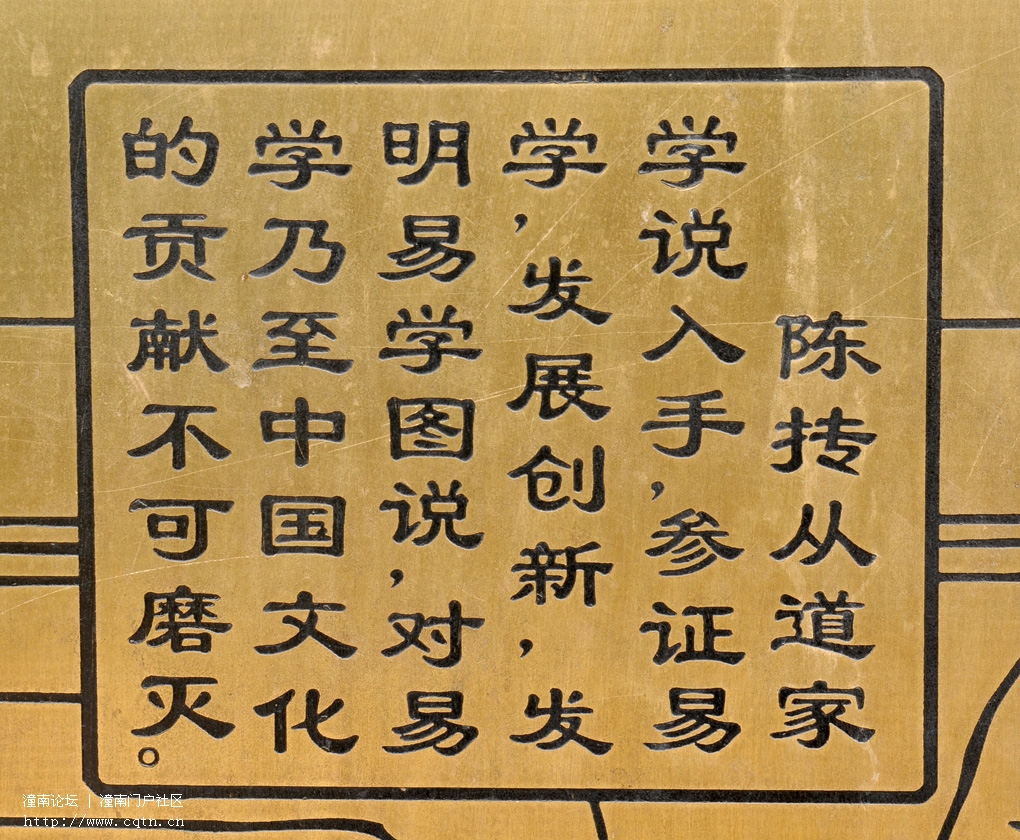 陈抟从道家
学说入手,参证易
学,发展创新,发
明易学图说,对易
学乃至中国文化
的贡献不可磨灭。
潼南论坛 | 潼南门户社区
http://www.cqtn.cn